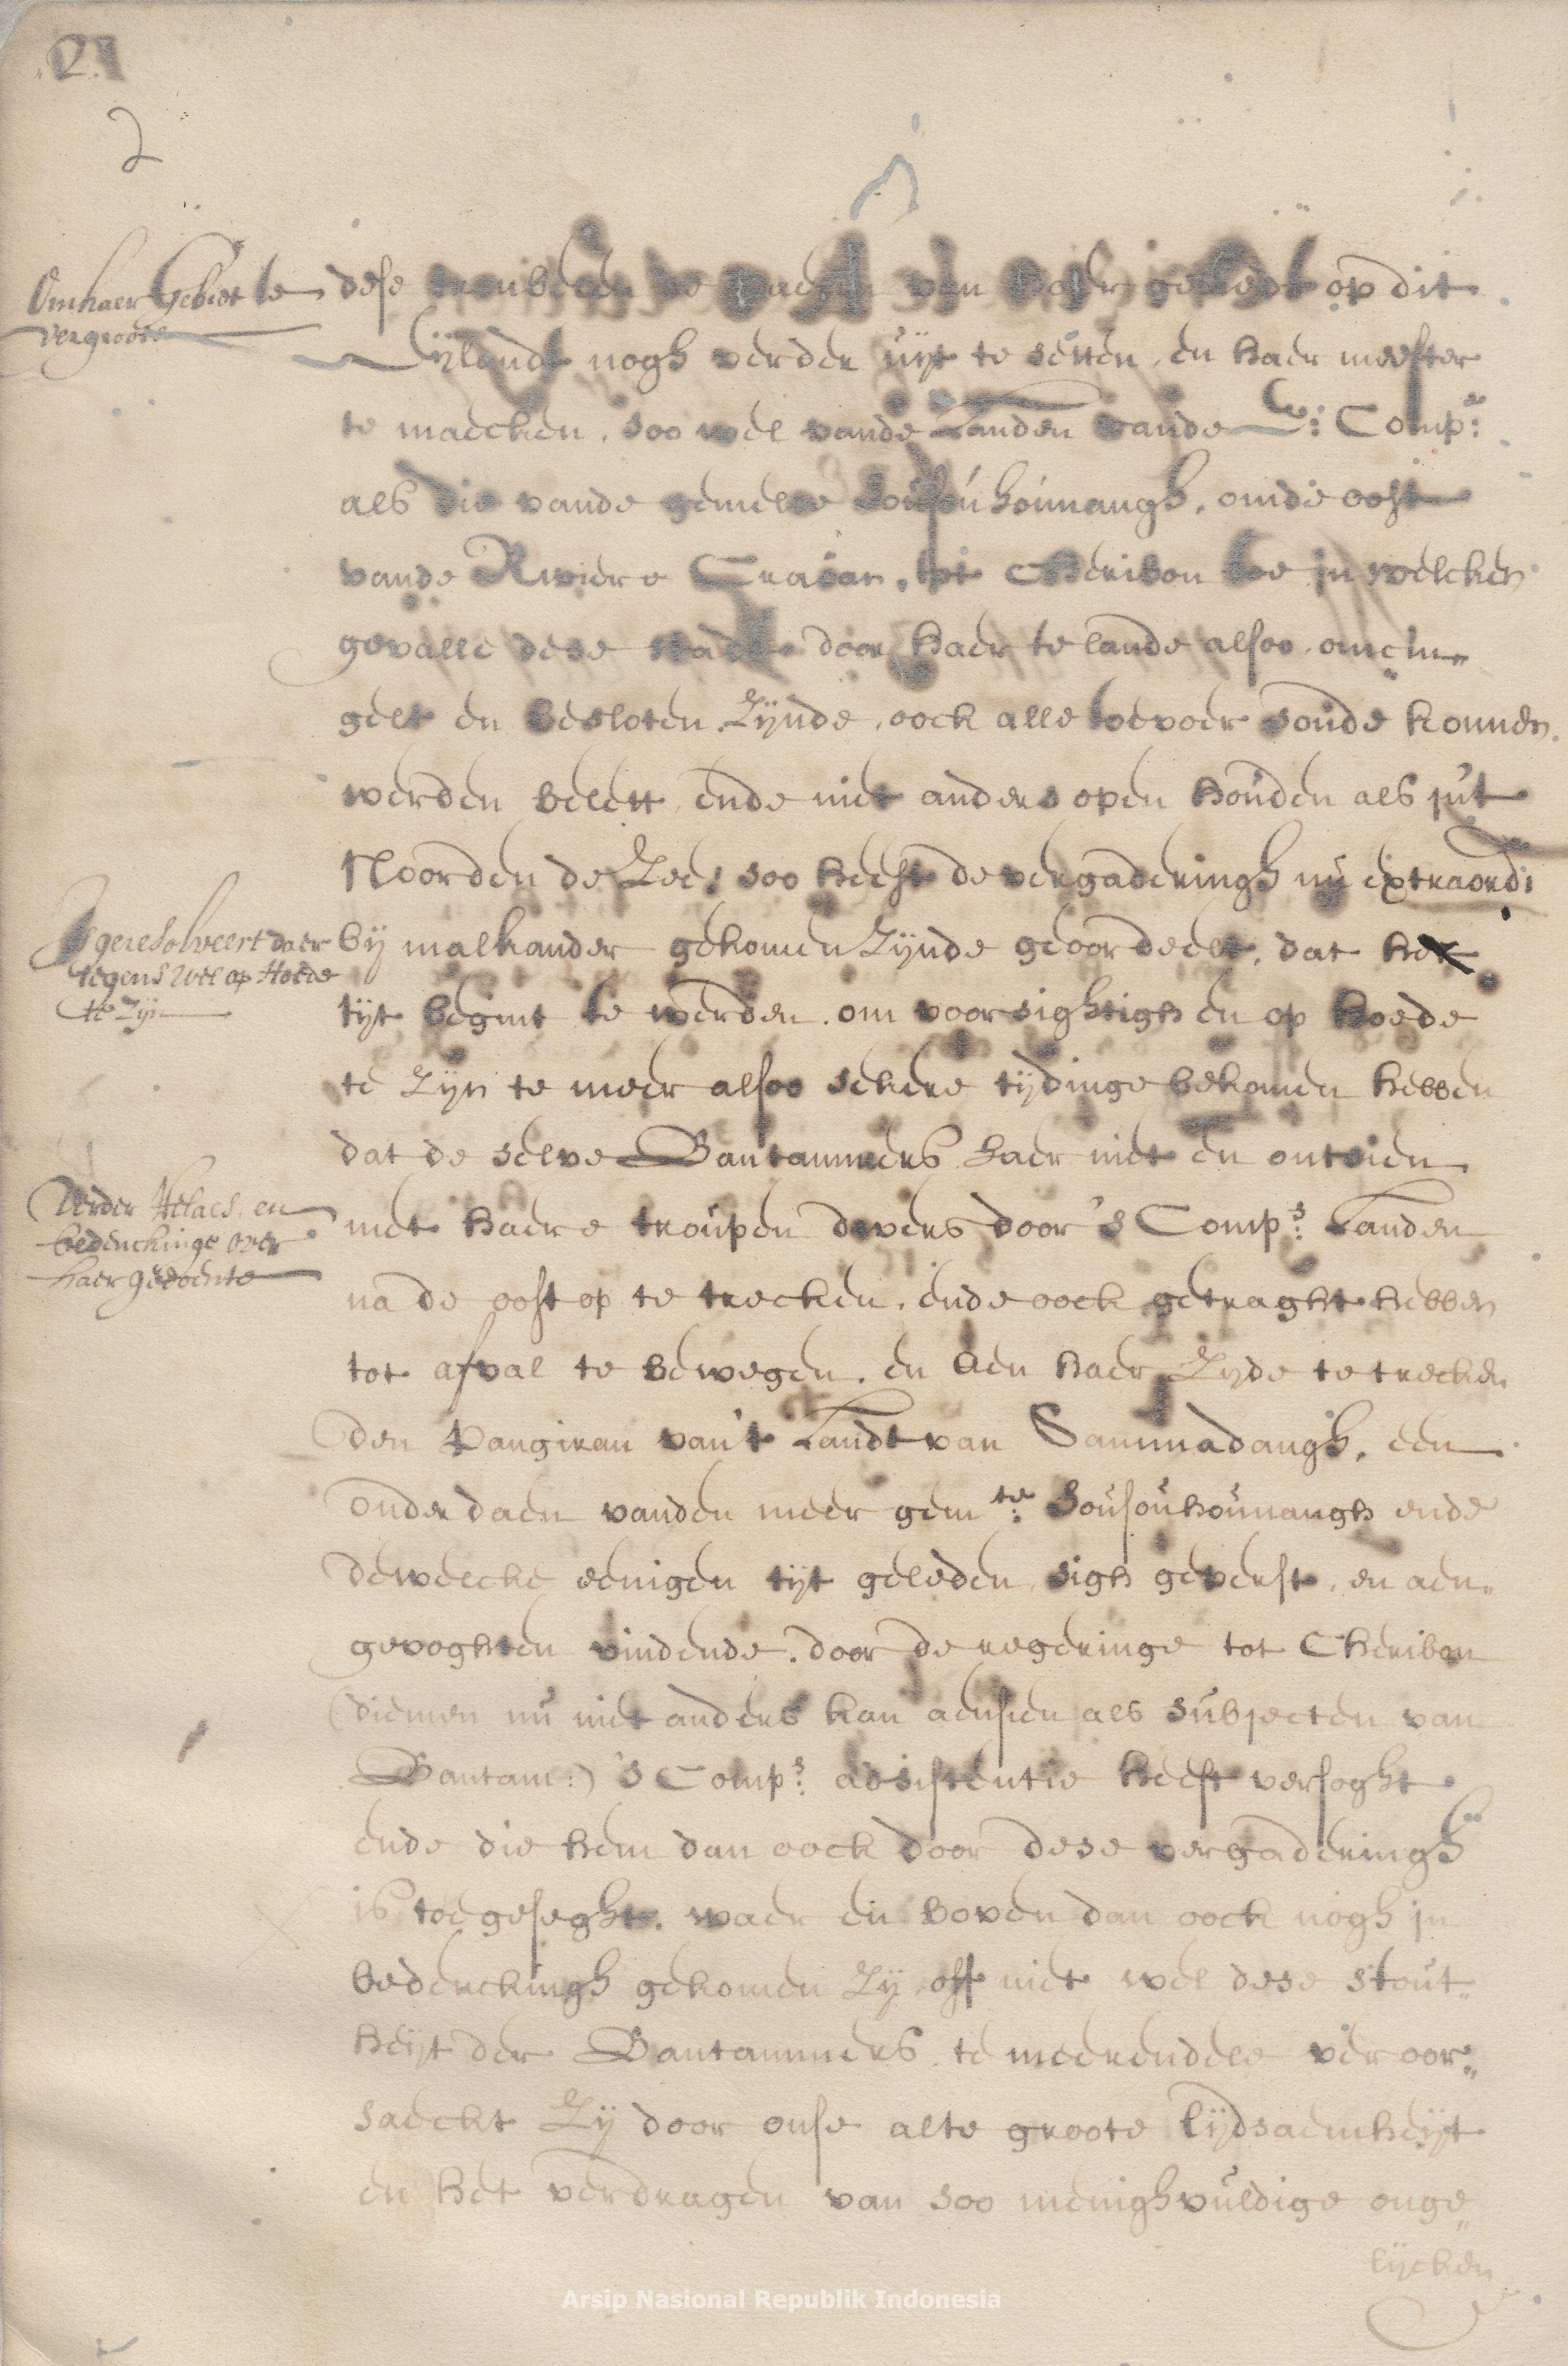 2
Om haer Gebiet te
vergroote
dese op dit
Eijlandt nogh verder uijt te setten, en haer meester
te maecken, soo wel vande Landen vande E: Comp:
als die vande gemelte Sousouhounangh, om de oost
vande Riviere Crawan, tot Cheribon toe in welcken
gevalle dese stadt door haer te lande alsoo omcin„
gelt en besloten Zijnde, oock alle toevoer soude konnen
werden belett ende niet anders open houden als jnt
Noorden de Zee, soo heeft de vergaderingh nu extraord:
Is geresolveert daer
tegens wel op Hoede
te Zijn
bij malkander gekomen Zijnde geoordeelt, dat het
tijt begint te werden om voorsightigh en op hoede
te Zijn te meer alsoo sekere tijdinge bekomen hebben
dat de selve Bantammers haer niet en ontsien
Verder Relaes en
bedenckinge over
haer gedoente
met haere troupen dwers door 's Comp:s Landen
na de oost op te trecken, ende oock getraght hebben
tot afval te bewegen, en aen haer Zijde te trecken
den Pangiran van't Landt van Sammadangh, een
onderdaen vanden meer gem:te Sousouhounangh ende
dewelcke eenigen tijt geleden sigh geperst, en aen„
gevoghten vindende, door de regeringe tot Cheribon
(diemen nu niet anders kan aensien als subjecten van
Bantam:) 's Comp:s adsistentie heeft versoght
ende die hem dan oock door dese vergaderingh
is toegeseght, waer en boven dan oock nogh in
bedenckingh gekomen Zij, off niet wel dese stout„
heijt der Bantammers, te meerendeele veroor„
saeckt Zij door onse alte groote lijdsaemheijt
en het verdragen van soo menighvuldige onge„
lijcken
Arsip Nasional Republik Indonesia